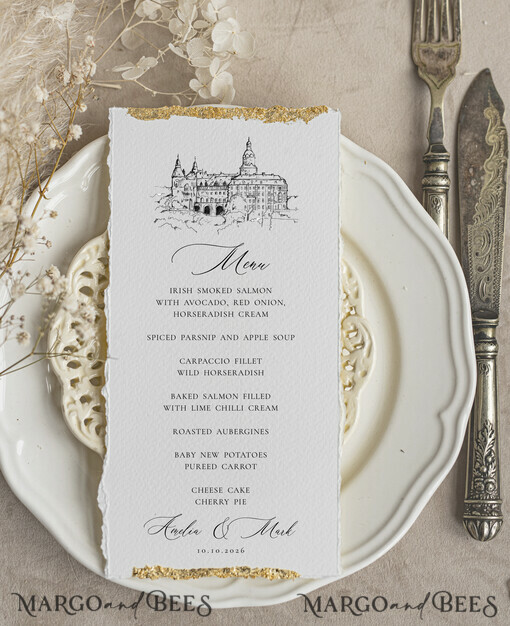 Menu
IRISH SMOKED SALMON
WITH AVOCADO, RED ONION,
HORSERADISH CREAM
SPICED PARSNIP AND APPLE SOUP
CARPACCIO FILLET
WILD HORSERADISH
BAKED SALMON FILLED
WITH LIME CHILLI CREAM
ROASTED AUBERGINES
BABY NEW POTATOES
PUREED CARROT
CHEESE CAKE
CHERRY PIE
Amelia & Mark
10.10.2026
MARGO and BEES MARGO and BEES